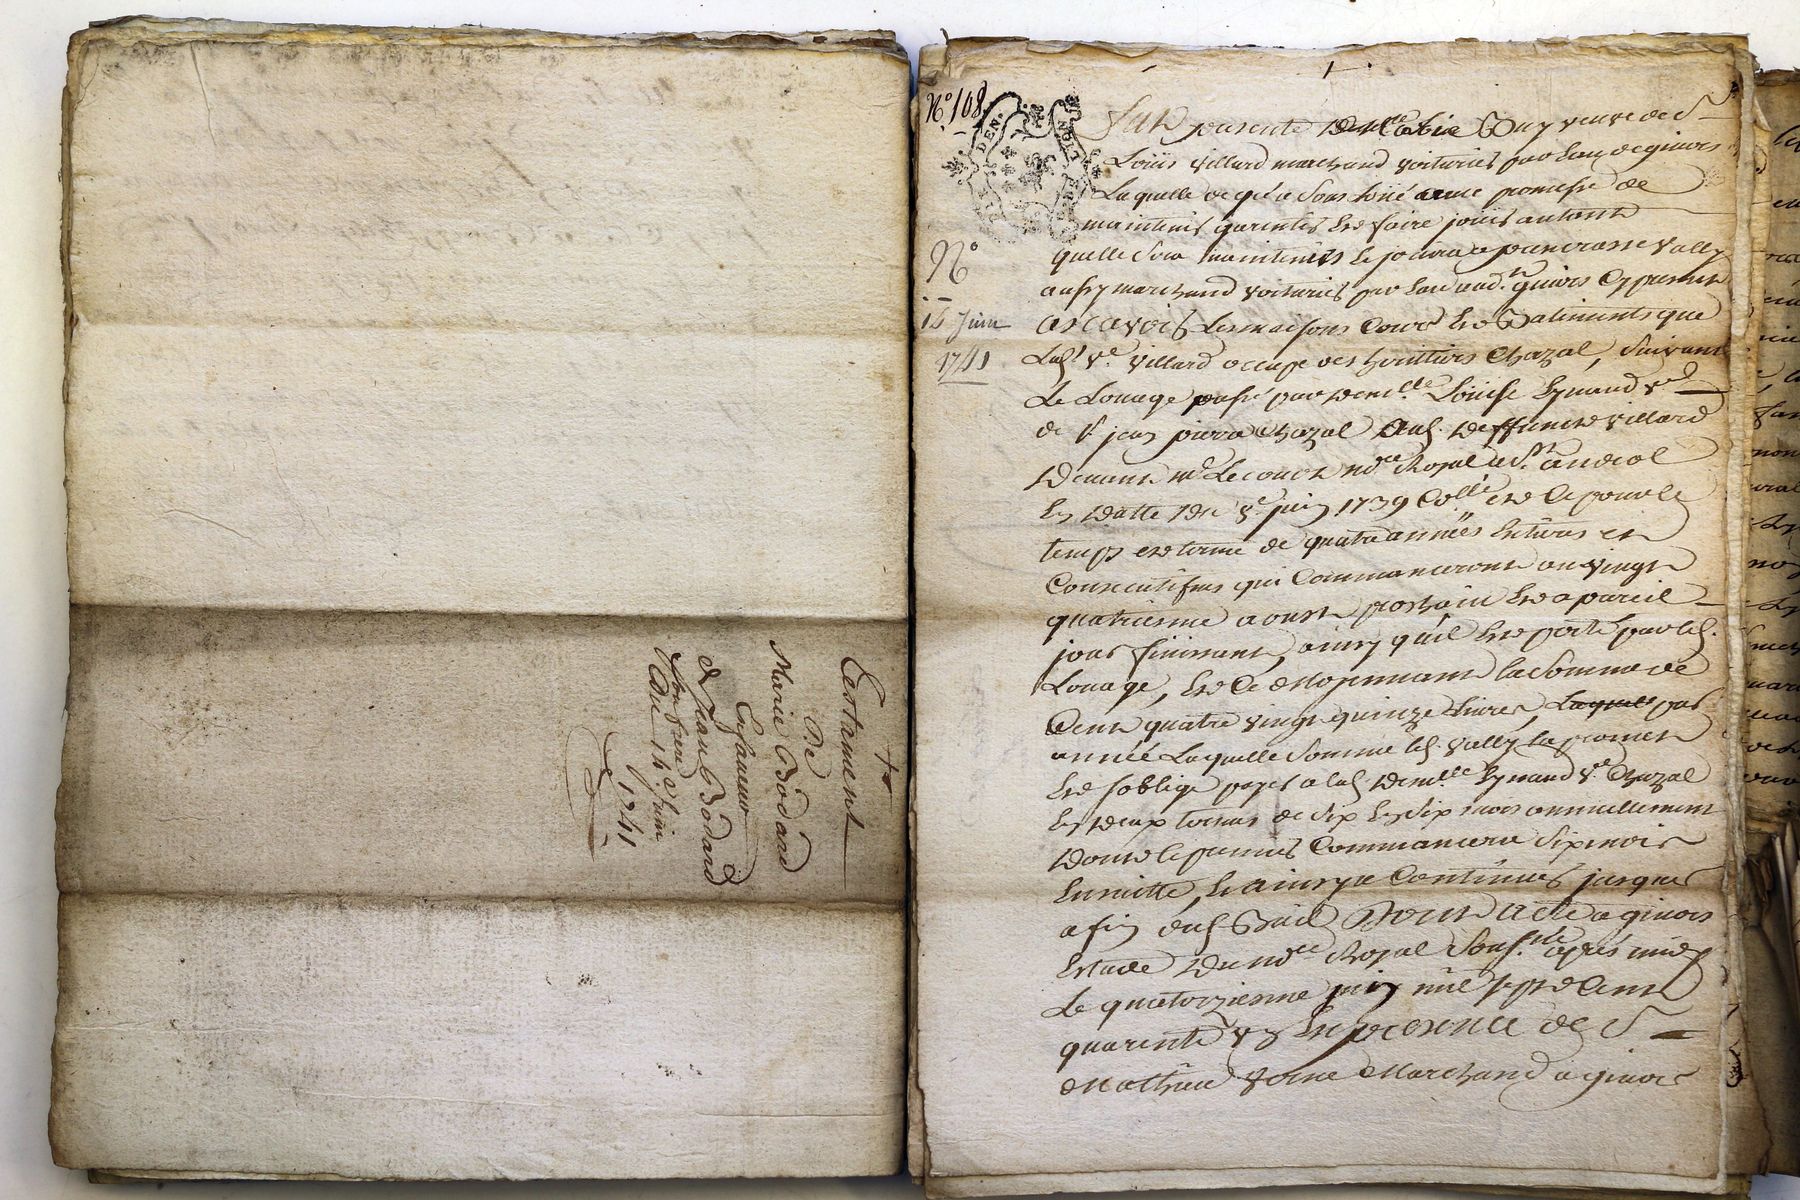 Testament
De
Marie Bodard
En faveur
de Jean Bodard
son frere
Du 14e Juin
1741
No. 108
DEN.
LION
No
14 Juin
1741
Fut presente Guy veuve de Sr
Loüis Villard marchand voiturier par eau de givors
Laquelle de gré a sous loüé avec promesse de
maintenir garentir et faire jouir autant
quelle sera maintenüe le jouira a pancrasse Vally
aussy marchand voiturier par eau aud. givors Cy present
ascavoir Les maisons Cour et Batiments que
Lad. ve. Villard occupe des heritiers Chazal, Suivant
Le Louage passé par demlle Loüise Eynard ve
de Sr jean pierre Chazal aud. deffunct Villard
devant me Lecourt nore Royal a St andeol
En datte du juin 1739 Collé et Ce pour le
temps et terme de quatre années Entieres et
Consecutifves qui Commanceront au vingt
quatrieme aoust prochain et a pareil
jour finissant, ainsy quil est porté par led.
Louage, et Ce moyennant la somme de
Cent quatre vingt quinze Livres, Laquelle par
année Laquelle somme led. Vally la promet
et soblige payer a lad. demlle Eynard ve Chazal
En deux termes de six En six mois annuellement
dont le premier Commancera six mois
Ensuitte, et ainsy a Continüer jusques
a fin dud. Bail Dont acte a givors
Estude du nore Royal soussné apres midy
Le quatorzieme juin mil sept Cent
quarente En presence de Sr
Mathieu Marchand a givors